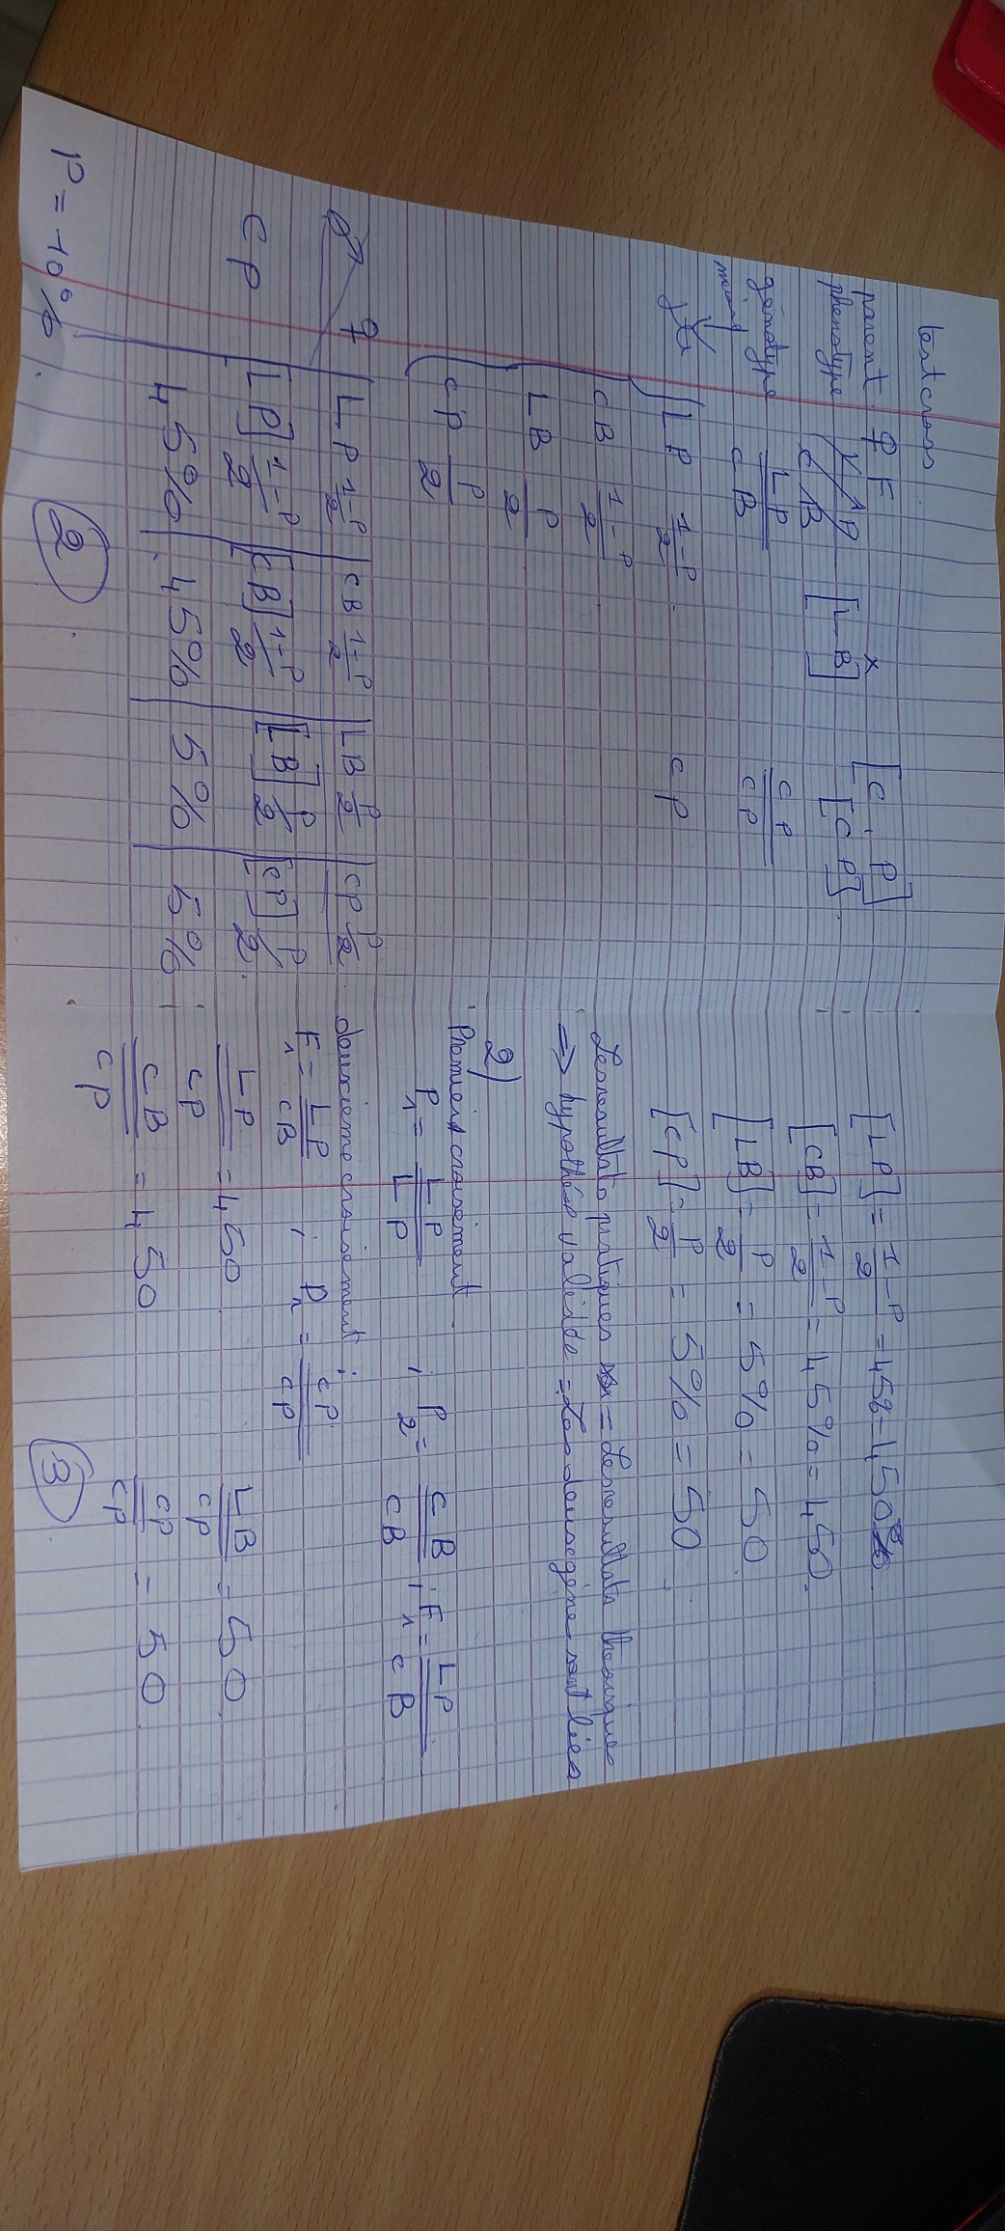 test cross
parent ♀ F x [c . P]
phénotype [L B] [c P]
génotype LP/cB cP/cP
γts LP 1-P/2 cP
cB 1-P/2
LB P/2
cP P/2
♂ ♀ LP 1-P/2 cB 1-P/2 LB P/2 cP P/2
cP [LP] 1-P/2 [cB] 1-P/2 [LB] P/2 [cP] P/2
45% 45% 5% 5%
P = 10%.
2
[LP] = 1-P/2 = 45% = 450
[cB] = 1-P/2 = 45% = 450
[LB] = P/2 = 5% = 50
[cP] = P/2 = 5% = 50
Les resultats pratiques = Les resultats theoriques
=> hypothése validée = Les deux gène sont liés
2)
Premier croisement
P1 = LP/LP ; P2 = cB/cB ; F1 = LP/cB
douxieme croisement :
F1 = LP/cB ; P2 = cP/cP
LP/cP = 450 LB/cP = 50
cB/cP = 450 cP/cP = 50
3